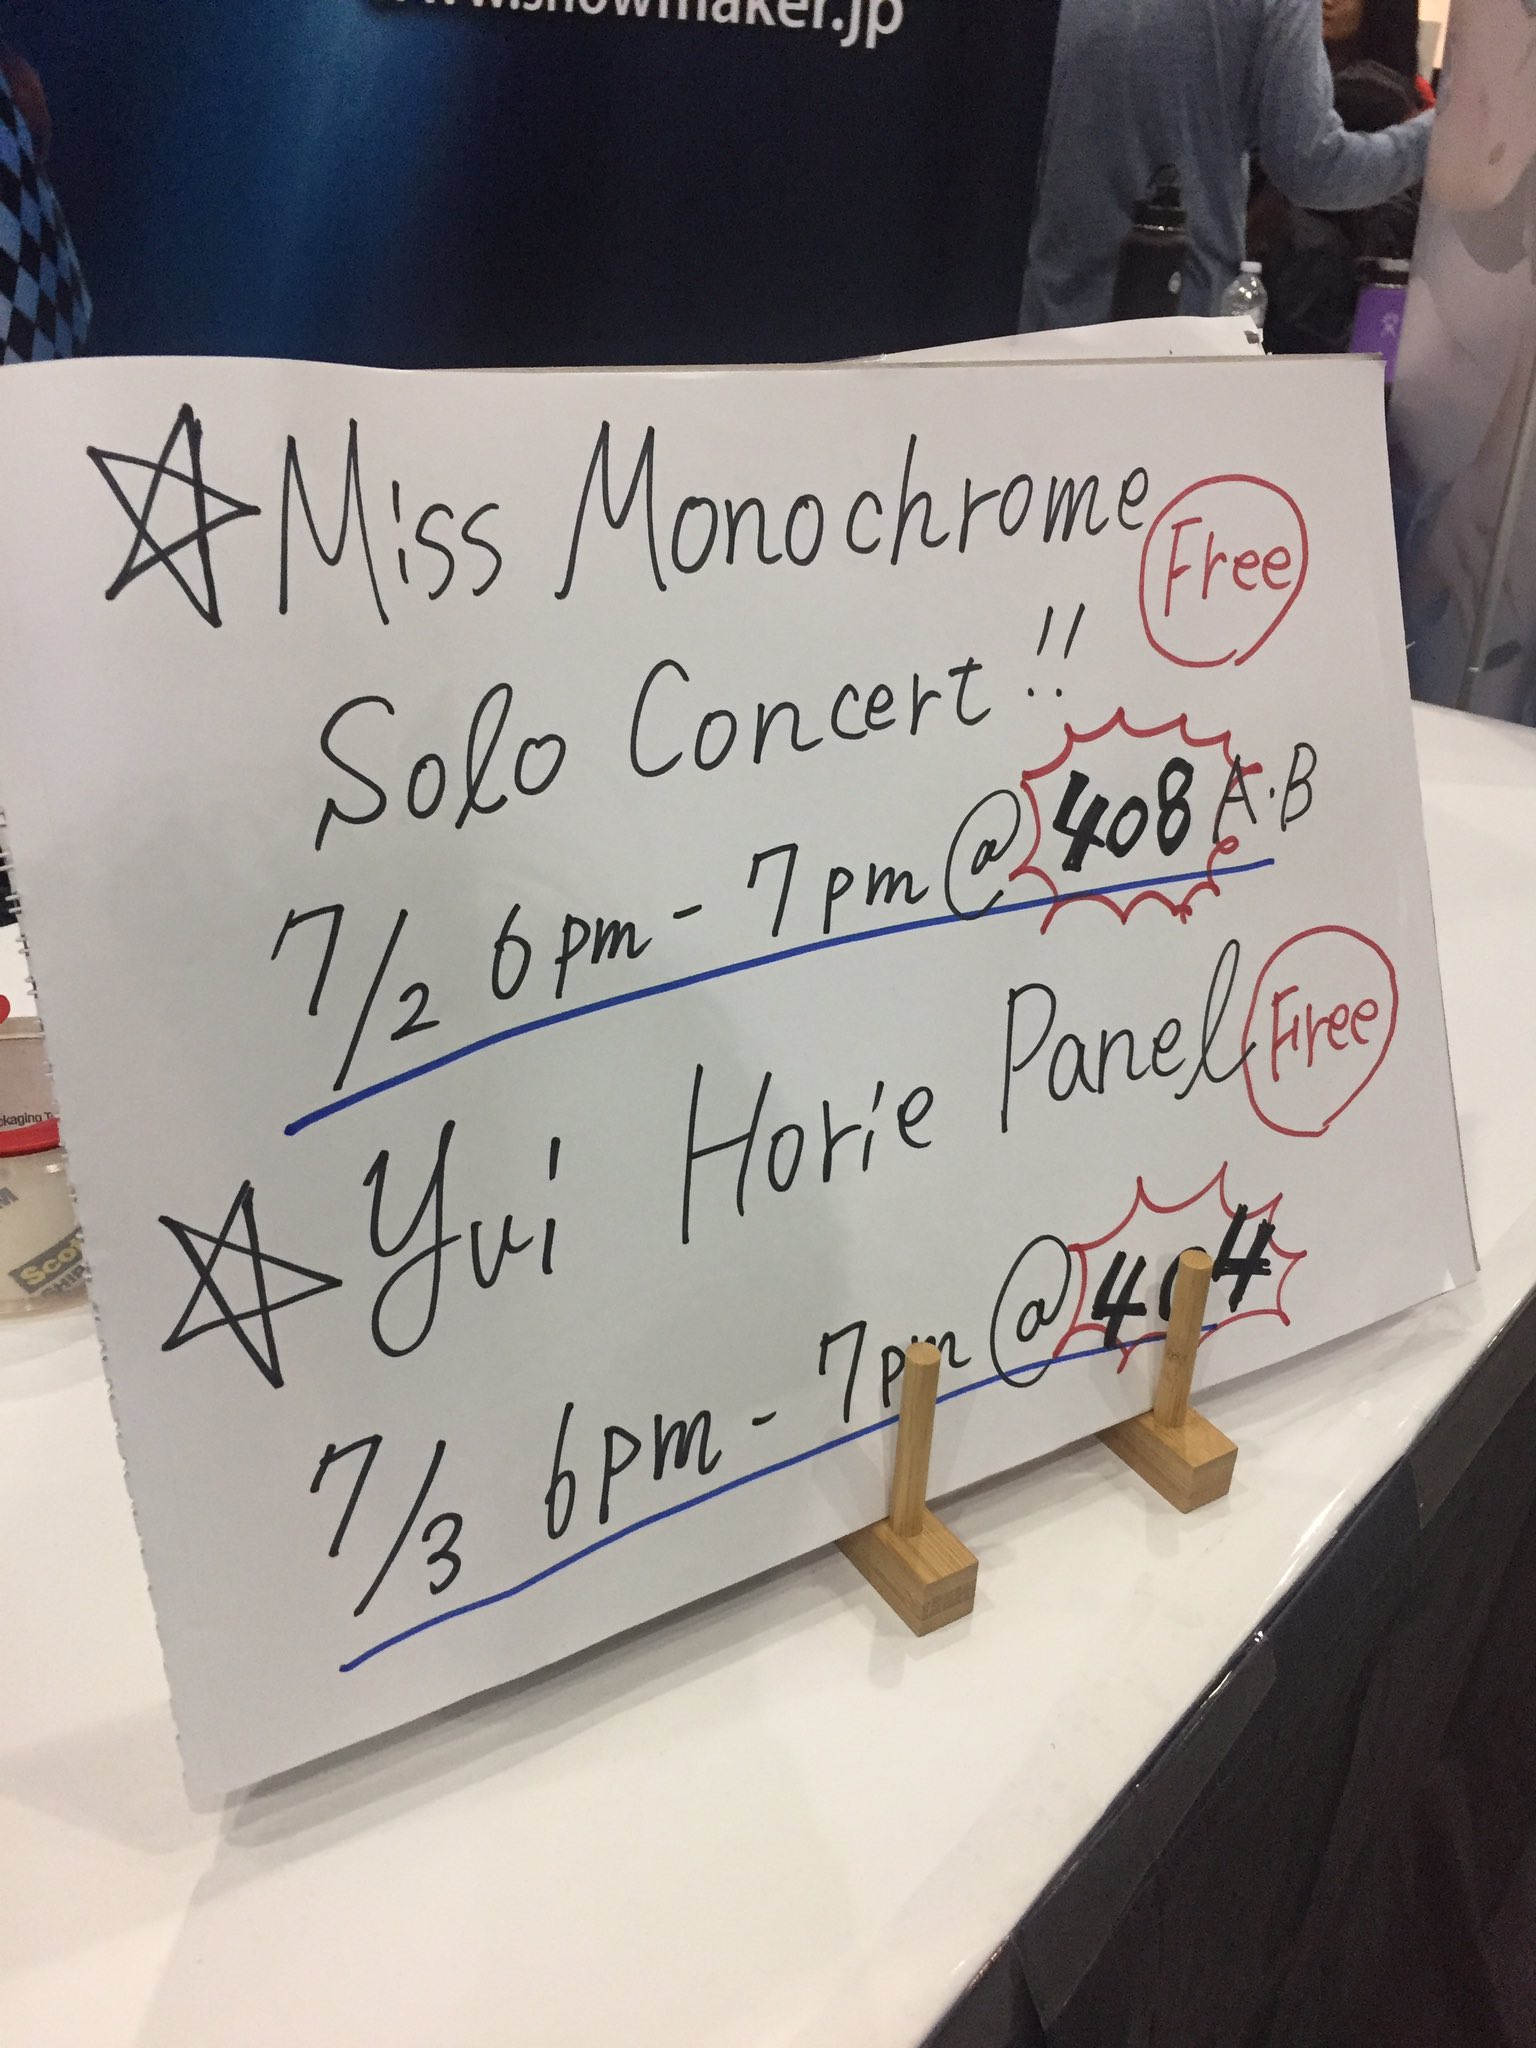 showmaker.jp
☆ Miss Monochrome Free
Solo Concert!!
7/2 6pm - 7pm @ 408 A・B
☆ Yui Horie Panel Free
7/3 6pm - 7pm @ 404